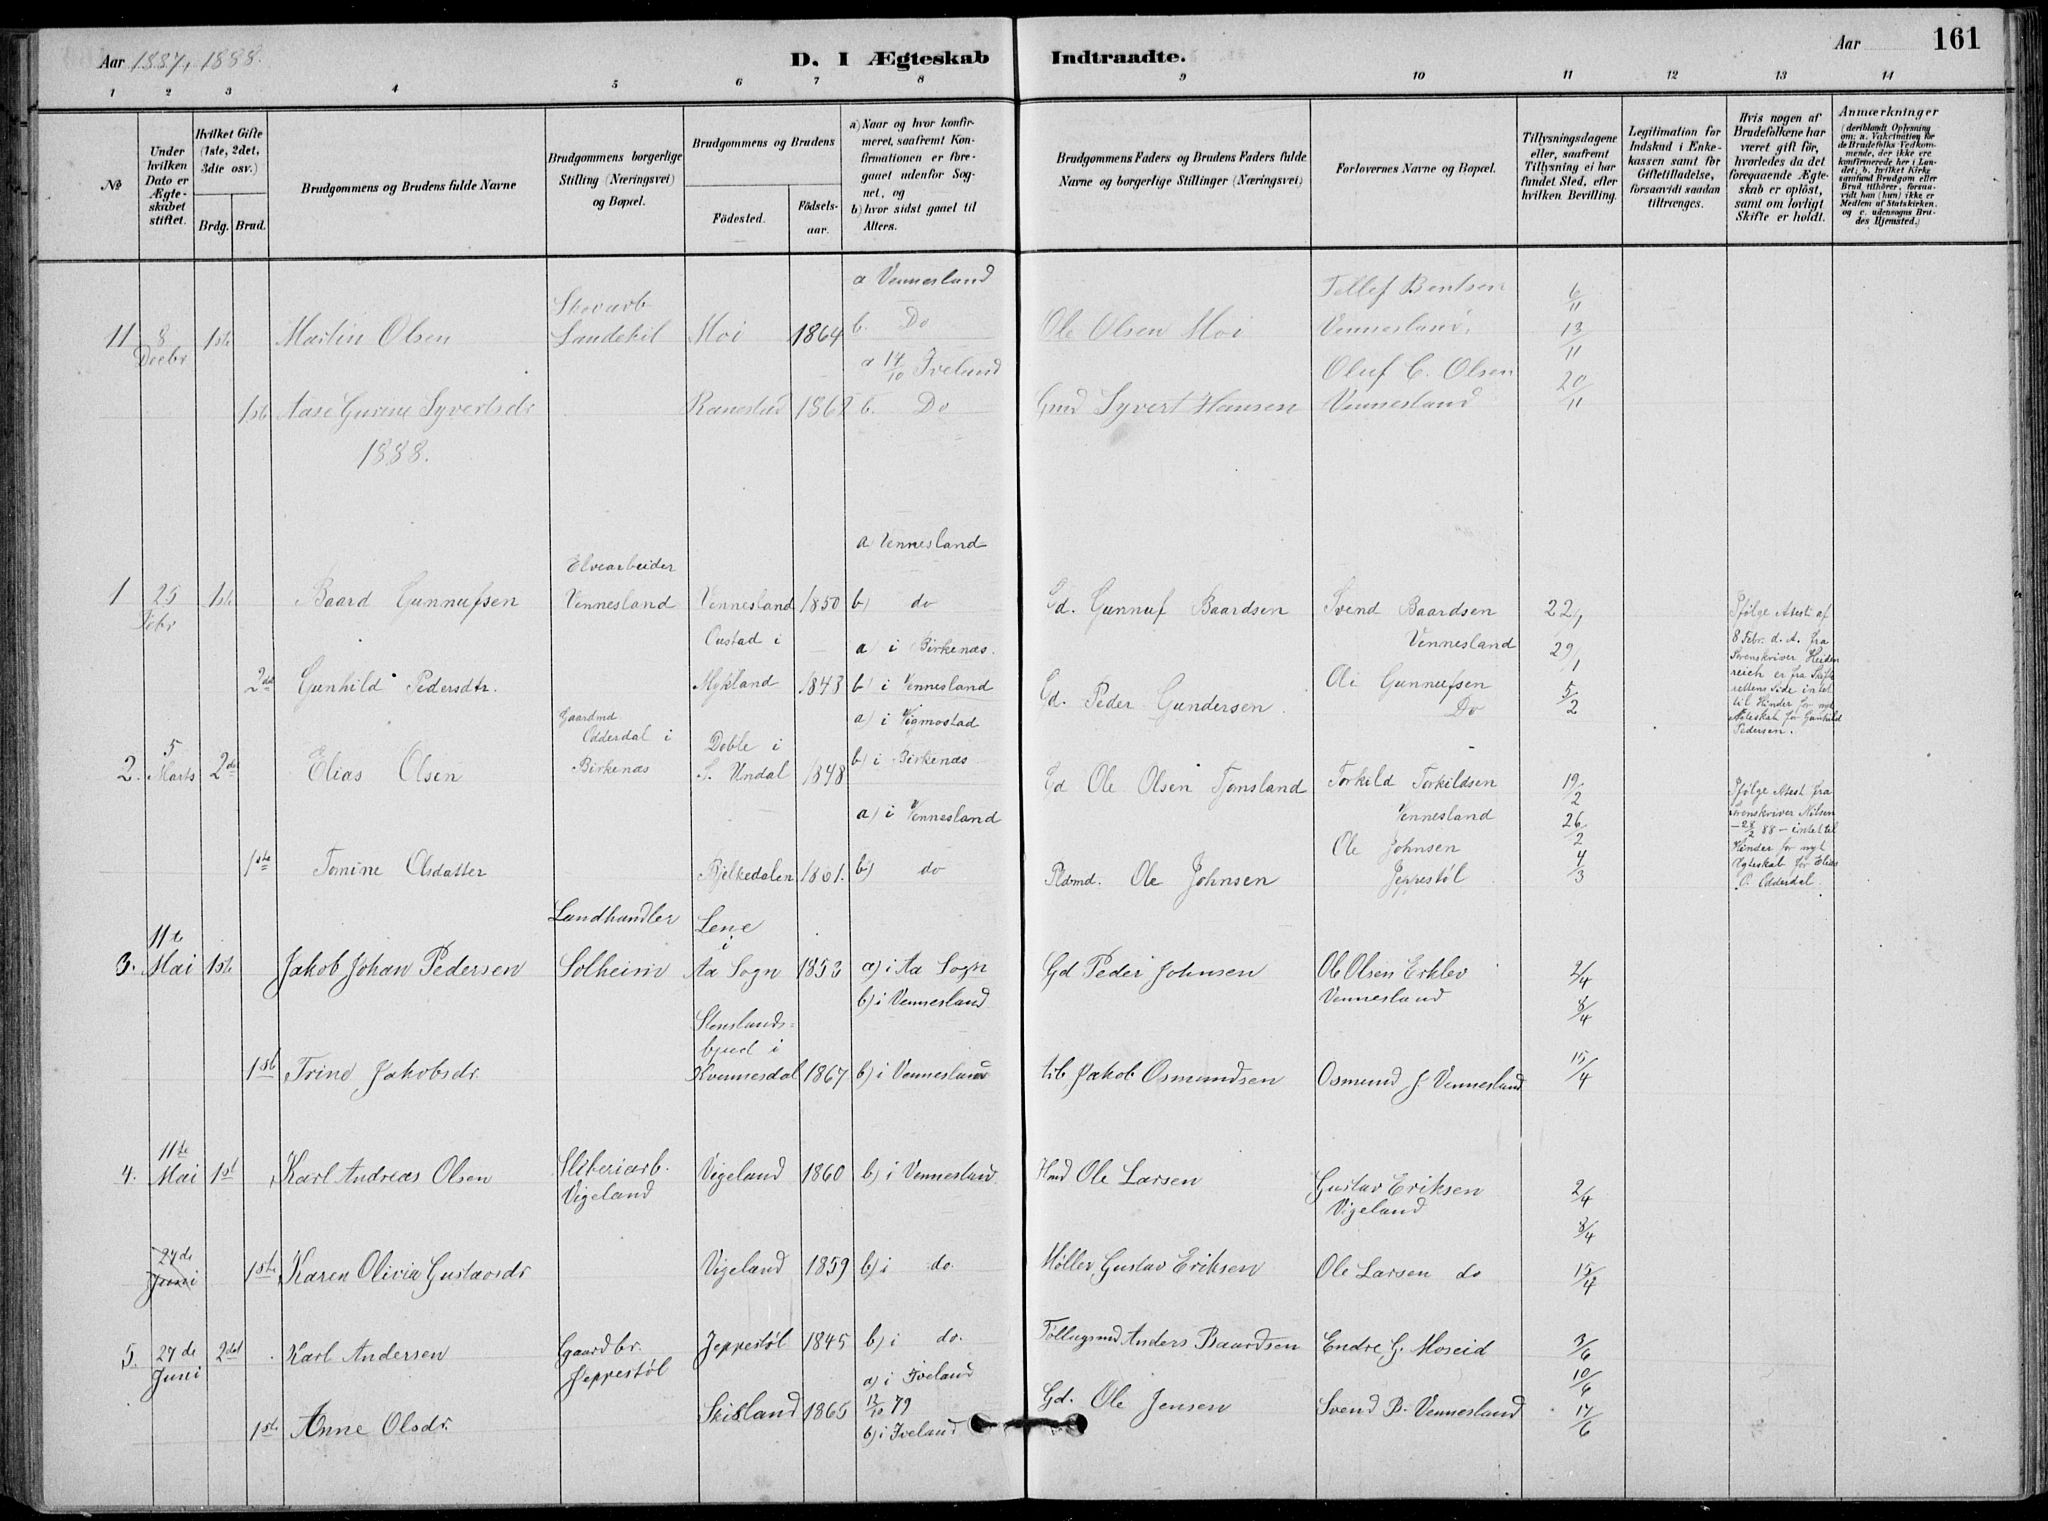 Aar 1887, 1888.
D. I Ægteskab
Indtraadte.
Aar
161
1 2 3 4 5 6 7 8 9 10 11 12 13 14
No
Under hvilken Dato er Ægteskabet stiftet.
Hvilket Gifte (1ste, 2det, 3dte osv.)
Brdg. Brud.
Brudgommens og Brudens fulde Navne
Brudgommens borgerlige Stilling (Næringsvei) og Bopæl.
Brudgommens og Brudens
Fødested.
Fødselsaar.
a) Naar og hvor konfirmeret, saafremt Konfirmationen er foregaaet udenfor Sognet, og
b) hvor sidst gaaet til Alters.
Brudgommens Faders og Brudens Faders fulde Navne og borgerlige Stillinger (Næringsvei)
Forlovernes Navne og Bopæl.
Tillysningsdagene eller, saafremt Tillysning ei har fundet Sted, efter hvilken Bevilling.
Legitimation for Indskud i Enkekassen samt for Giftetilladelse, forsaavidt saadan tiltrænges.
Hvis nogen af Brudefolkene har været gift før, hvorledes da det foregaaende Ægteskab er opløst, samt om lovligt Skifte er holdt.
Anmærkninger (deriblandt Oplysning om: a. Vakcination for de Brudefolks Vedkommende, der ikke ere konfirmerede her i Landet; b. hvilket Kirkesamfund Brudgom eller Brud tilhører, forsaavidt han (hun) ikke er Medlem af Statskirken, og c. udensogns Brudes Hjemsted.)
11 8 Decbr 1ste Martin Olsen Moi 1864 a Vennesland b. Do Ole Olsen Moi Tellef Bentsen Vennesland 6/11 13/11
1ste Aase Gurine Syvertsdr 1862 a 14/10 Iveland b. Do Gmd Syvert Hansen Oluf C. Olsen Vennesland 20/11
1888.
1 25 Febr 1ste Baard Gunnufsen Elvearbeider Vennesland Vennesland 1850 a Vennesland b) do Gd. Gunnuf Baardsen Svend Baardsen Vennesland 22, 29/1
2det Gunhild Pedersdtr. Custad i Mykland 1843 a) i Birkenæs. b) i Vennesland Gd. Peder Gundersen Ole Gunnufsen Do 5/2
Ifølge Attest af 8 Febr. d. A. fra Sorenskriver Heidenreich er fra Skifterettens Side intet til Hinder for nyt Ægteskab for Gunhild Pedersen.
2. 5 Marts 2det Elias Olsen Gaardmd Odderdal i Birkenæs Doble i S. Undal 1848 a) i Vigmostad b) i Birkenæs Gd Ole Olsen Tjomsland Torkild Torkildsen Vennesland 19/2 26/2
1ste Tomine Olsdatter Bjelkedalen 1861. a) i Vennesland b) do Pldmd. Ole Johnsen Ole Johnsen Jeppestøl 4/3
Ifølge Attest fra Sorenskriver Nilsen – 28/2 88 – intet til Hinder for nyt Ægteskab for Elias O. Odderdal.
3. 11te Mai 1ste Jakob Johan Pedersen Landhandler Solheim Lene i Aa Sogn 1853 a) i Aa Sogn b) i Vennesland Gd Peder Johnsen Ole Olsen Erklev Vennesland 2/4 8/4
1ste Trine Jakobsdr. Kvennesdal 1867 b) i Vennesland Jakob Osmundsen Osmund J Vennesland 15/4
4. 11te Mai 1ste Karl Andreas Olsen Sliberiarb. Vigeland Vigeland 1860 b) i Vennesland Hmd Ole Larsen Gustav Eriksen Vigeland 2/4 8/4
27de Juni 1ste Karen Olivia Gustavsdr Vigeland 1859 b) i do. Møller Gustav Eriksen Ole Larsen do 15/4
5. 27de Juni 2det Karl Andersen Gaardbr. Jeppestøl Jeppestøl 1845 b) i do. Anders Baardsen Endre G. Moseid 3/6 10/6
1ste Anne Olsdr. Skisland 1865 a) i Iveland 12/10 79 b) i Iveland Gd. Ole Jensen Svend B. Vennesland 17/6